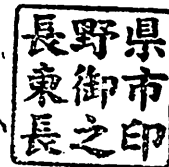 長野県
東御市
長之印